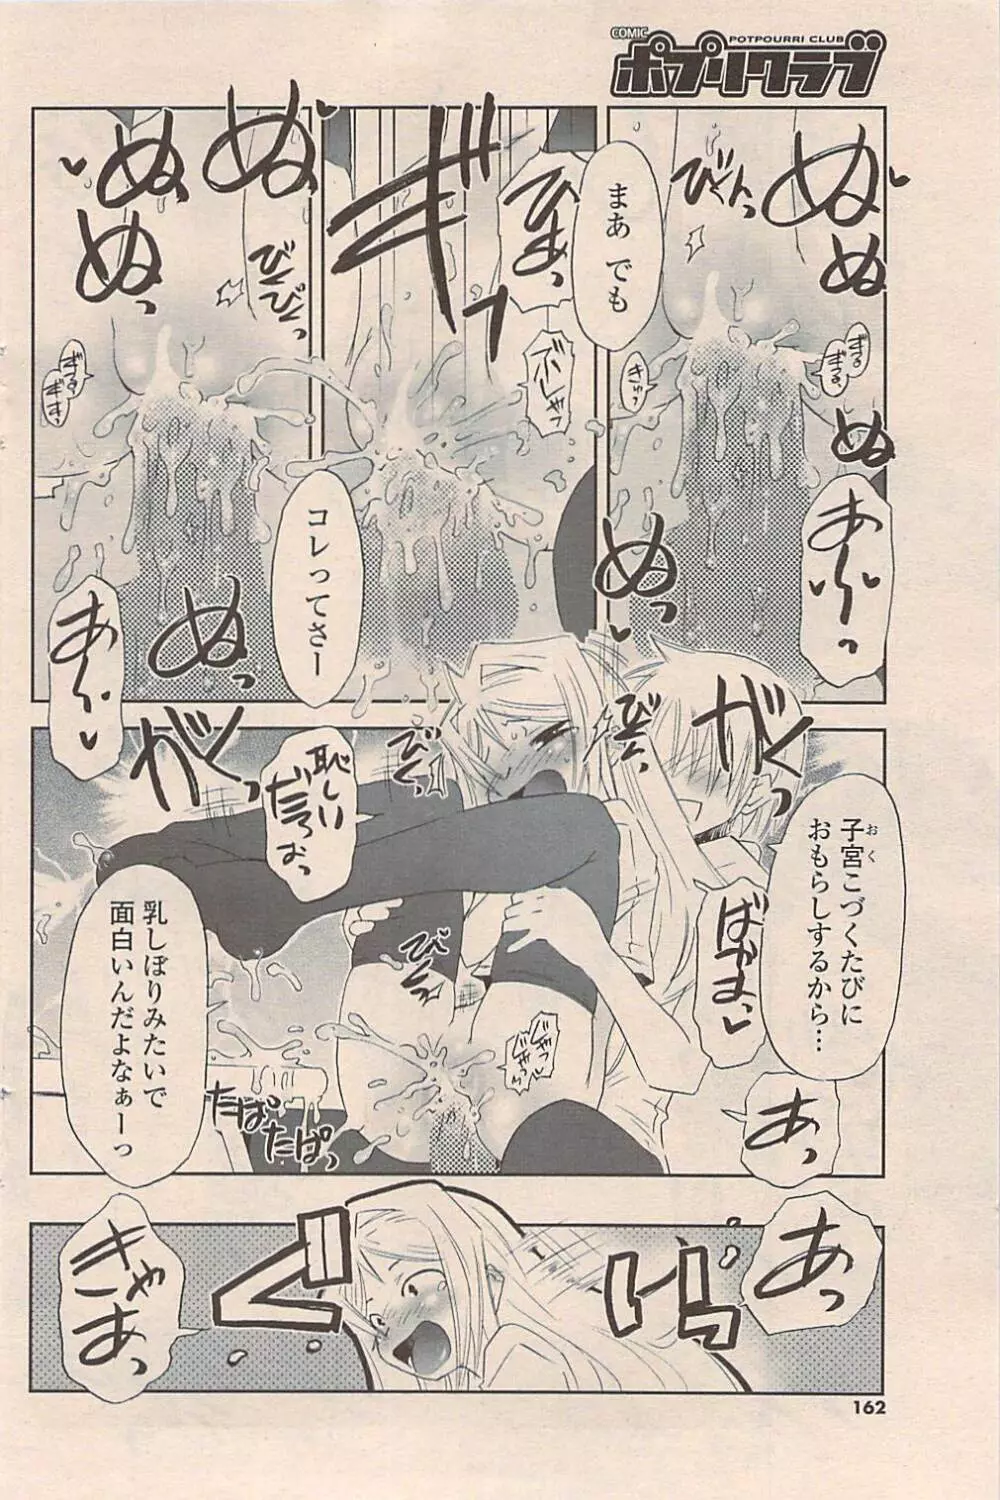 COMIC
POTPOURRI CLUB
ポプリクラブ
ぬ
ぬっ
ぬっ
びくんっ
まあ でも
きゅっ
ぎる
ぎる
あ～っ
ひぁあっ
ギッ
ぶしゃっ
コレってさー
ぬ
ぬ
ぬっ
びび
びびっ
ぎする
ぎすっ
ぬっ
あ～
子宮こづくたびに
おく
おもらしするから…
がくっ
びくっ
びくっ
がくっ
恥しい
だろぉっ
びくっ
じゃっ
じゃっ
たぱ
たぱっ
あっ
乳しぼりみたいで
面白いんだよなぁーっ
あっ
きゃ
あっ
162